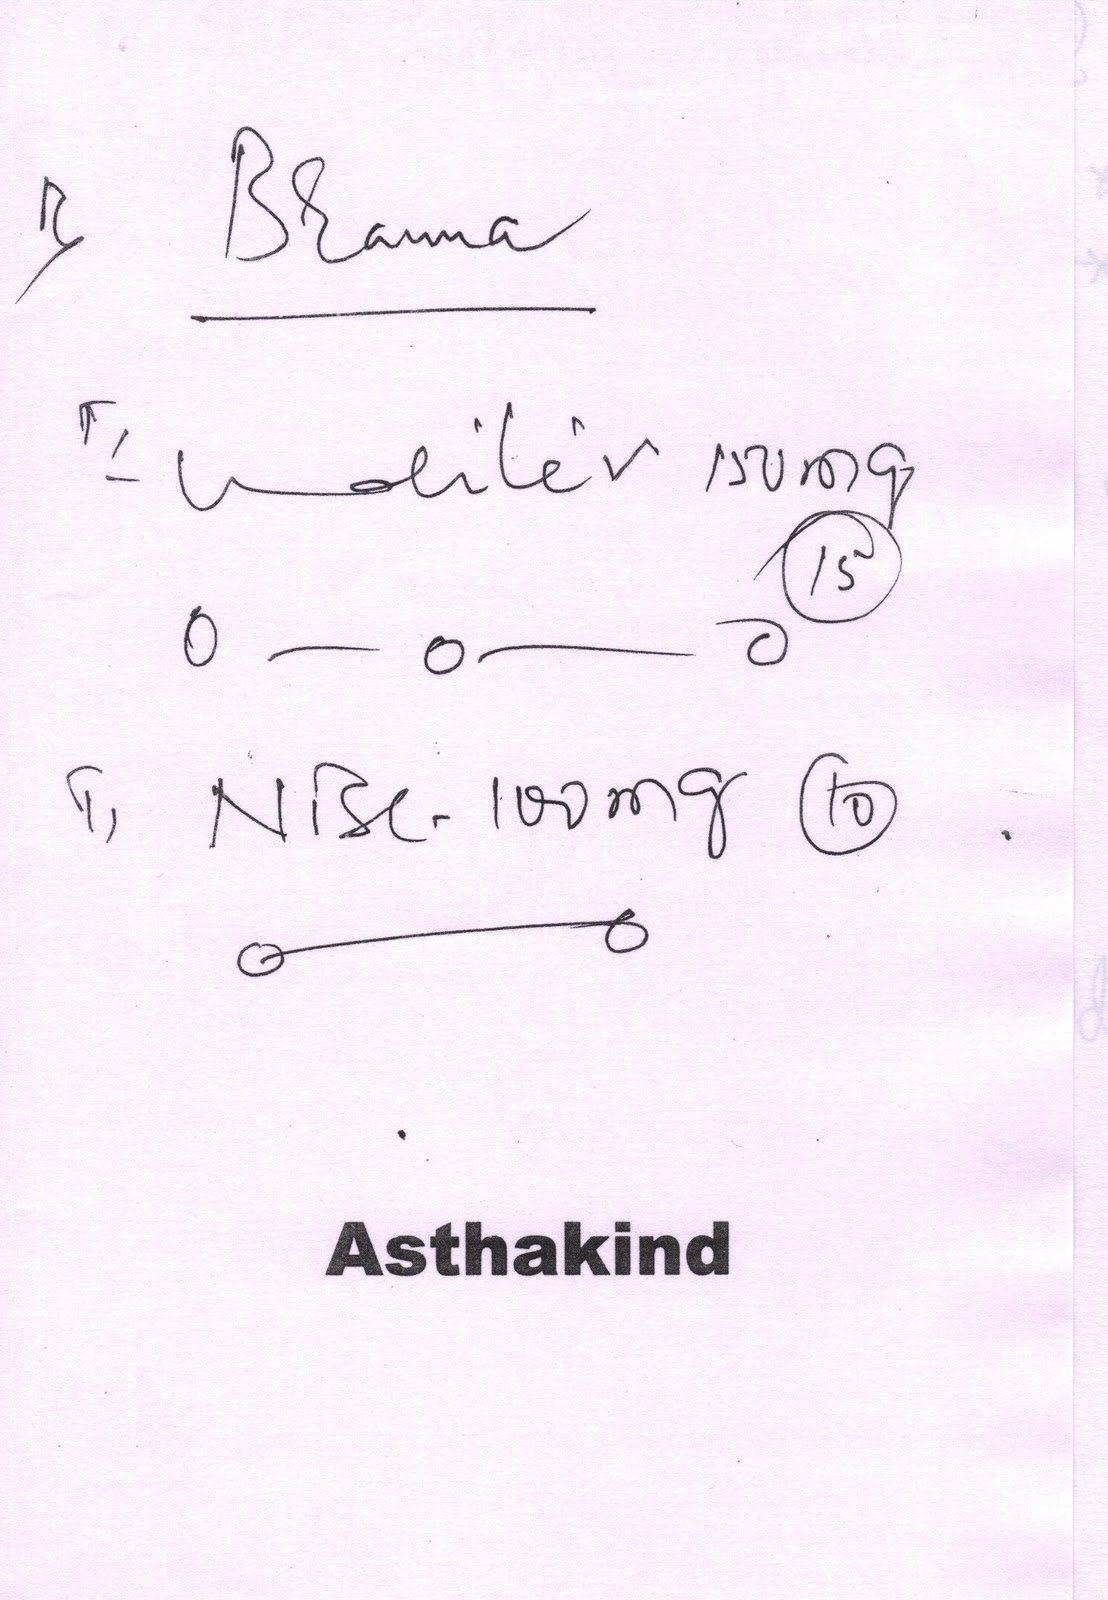 Rx Bhauma
T/- 150mg
15
0 — 0 — 0
T, NISE - 100mg 10
0 — 0
Asthakind